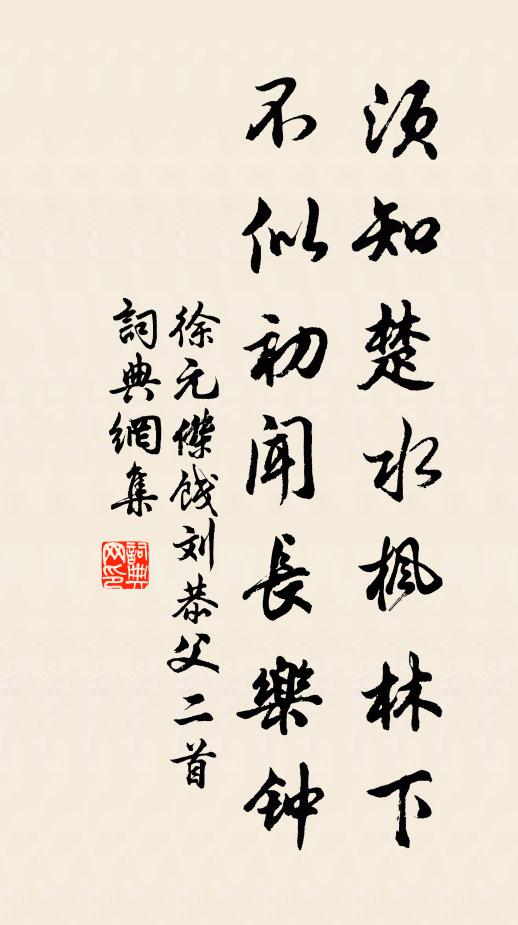 须知楚水枫林下
不似初闻長樂钟
徐元傑餞刘恭父二首
詞典網集
詞典网印